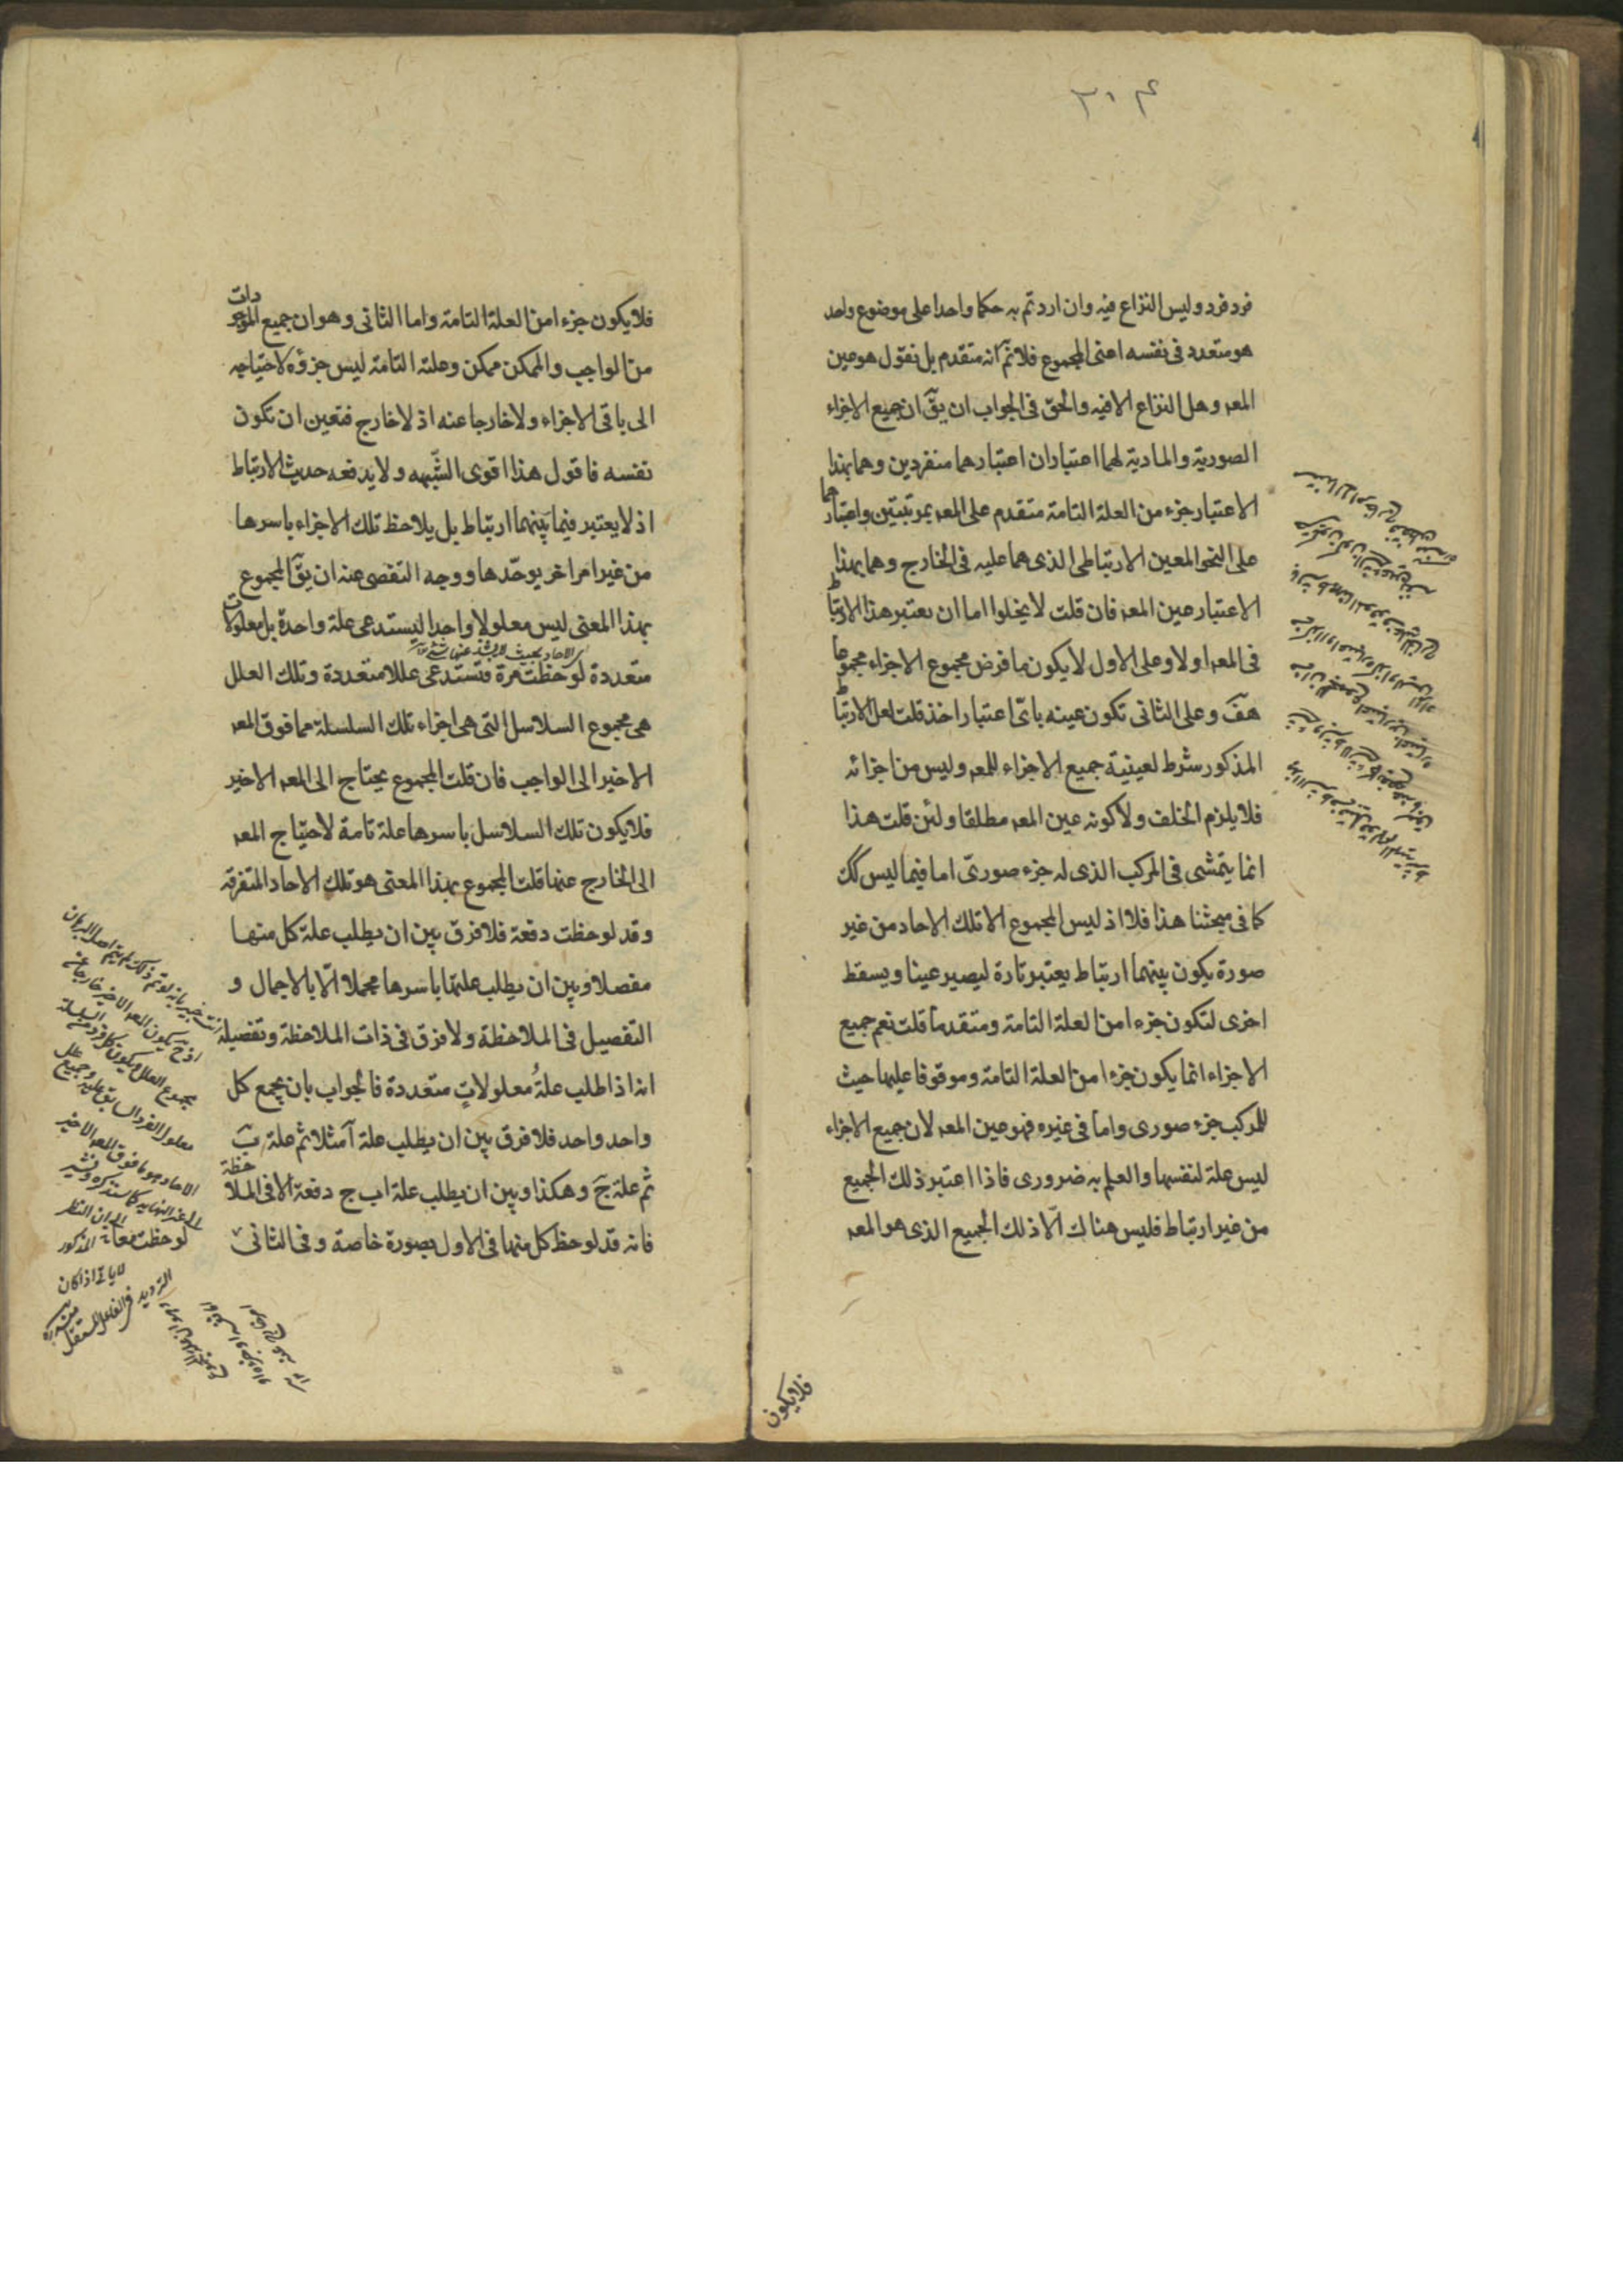 ۳۰۴
فرد فرد وليس النزاع فيه وان اردتم به حكما واحدا على موضوع واحد
هو متعدد فى نفسه اعنى المجموع فلا نم انه متقدم بل نقول هو عين
المعه وهل النزاع الا فيه والحق فى الجواب ان يق ان جميع الاجزاء
الصورية والمادية لهما اعتباران اعتبارهما منفردين وهما بهذا
الاعتبار جزء من العلة التامة متقدم على المعه بمرتبتين واعتبارهما
على النحو المعين الارتباطى الذى هما عليه فى الخارج وهما بهذا
الاعتبار عين المعه فان قلت لا يخلوا اما ان يعتبر هذا الارتباط
فى المعه اولا وعلى الاول لا يكون ما فرض مجموع الاجزاء مجموعا
هف وعلى الثانى تكون عينه باى اعتبار اخذ قلت لعل الارتباط
المذكور شرط لعينية جميع الاجزاء للمعه وليس من اجزائه
فلا يلزم الخلف ولا كونه عين المعه مطلقا ولئن قلت هذا
انما يتمشى فى المركب الذى له جزء صورى اما فيما ليس كك
كما فى مبحثنا هذا فلا اذ ليس المجموع الا تلك الاحاد من غير
صورة يكون بينهما ارتباط يعتبر تارة ليصير عينا ويسقط
اخرى لتكون جزءا من العلة التامة ومتقدما قلت نعم جميع
الاجزاء انما يكون جزءا من العلة التامة وموقوفا عليها حيث
للمركب جزء صورى واما فى غيره فهو عين المعه لان جميع الاجزاء
ليس علة لنفسها والعلم به ضرورى فاذا اعتبر ذلك الجميع
من غير ارتباط فليس هناك الا ذلك الجميع الذى هو المعه
فلا يكون
فلا يكون جزءا من العلة التامة واما الثانى وهو ان جميع الموجودات
من الواجب والممكن ممكن وعلته التامة ليس جزؤه لاحتياجه
الى باقى الاجزاء ولا خارجا عنه اذ لا خارج فتعين ان تكون
نفسه فاقول هذا اقوى الشبه ولا يدفعه حديث الارتباط
اذ لا يعتبر فيما بينهما ارتباط بل يلاحظ تلك الاجزاء باسرها
من غير امر اخر يوحدها ووجه التفصى عنه ان يق المجموع
بهذا المعنى ليس معلولا واحدا ليستدعى علة واحدة بل معلولات
اى الاحاد بحيث لا يشذ عنها شئ
متعددة لوحظت مرة فتستدعى عللا متعددة وتلك العلل
هى مجموع السلاسل التى هى اجزاء تلك السلسلة مما فوق المعه
الاخير الى الواجب فان قلت المجموع يحتاج الى المعه الاخير
فلا يكون تلك السلاسل باسرها علة تامة لاحتياج المعه
الى الخارج عنها قلت المجموع بهذا المعنى هو تلك الاحاد المتفرقة
وقد لوحظت دفعة فلا فرق بين ان يطلب علة كل منها
مفصلا وبين ان يطلب علتها باسرها مجملا الا بالاجمال و
التفصيل فى الملاحظة ولا فرق فى ذات الملاحظة وتفصيله
انه اذا طلب علة معلولات متعددة فالجواب بان يجمع كل
واحد واحد فلا فرق بين ان يطلب علة آ مثلا ثم علة ب
ثم علة ج وهكذا وبين ان يطلب علة ا ب ج دفعة الا فى الملاحظة
فانه قد لوحظ كل منها فى الاول بصورة خاصة وفى الثانى
مجموع العلل ويكون كل فرد من السلسلة
معلول الفرد السابق عليه وجميع علل
الاحاد هو ما فوق المعه الاخير
الى غير النهاية كما ستذكره ونشير